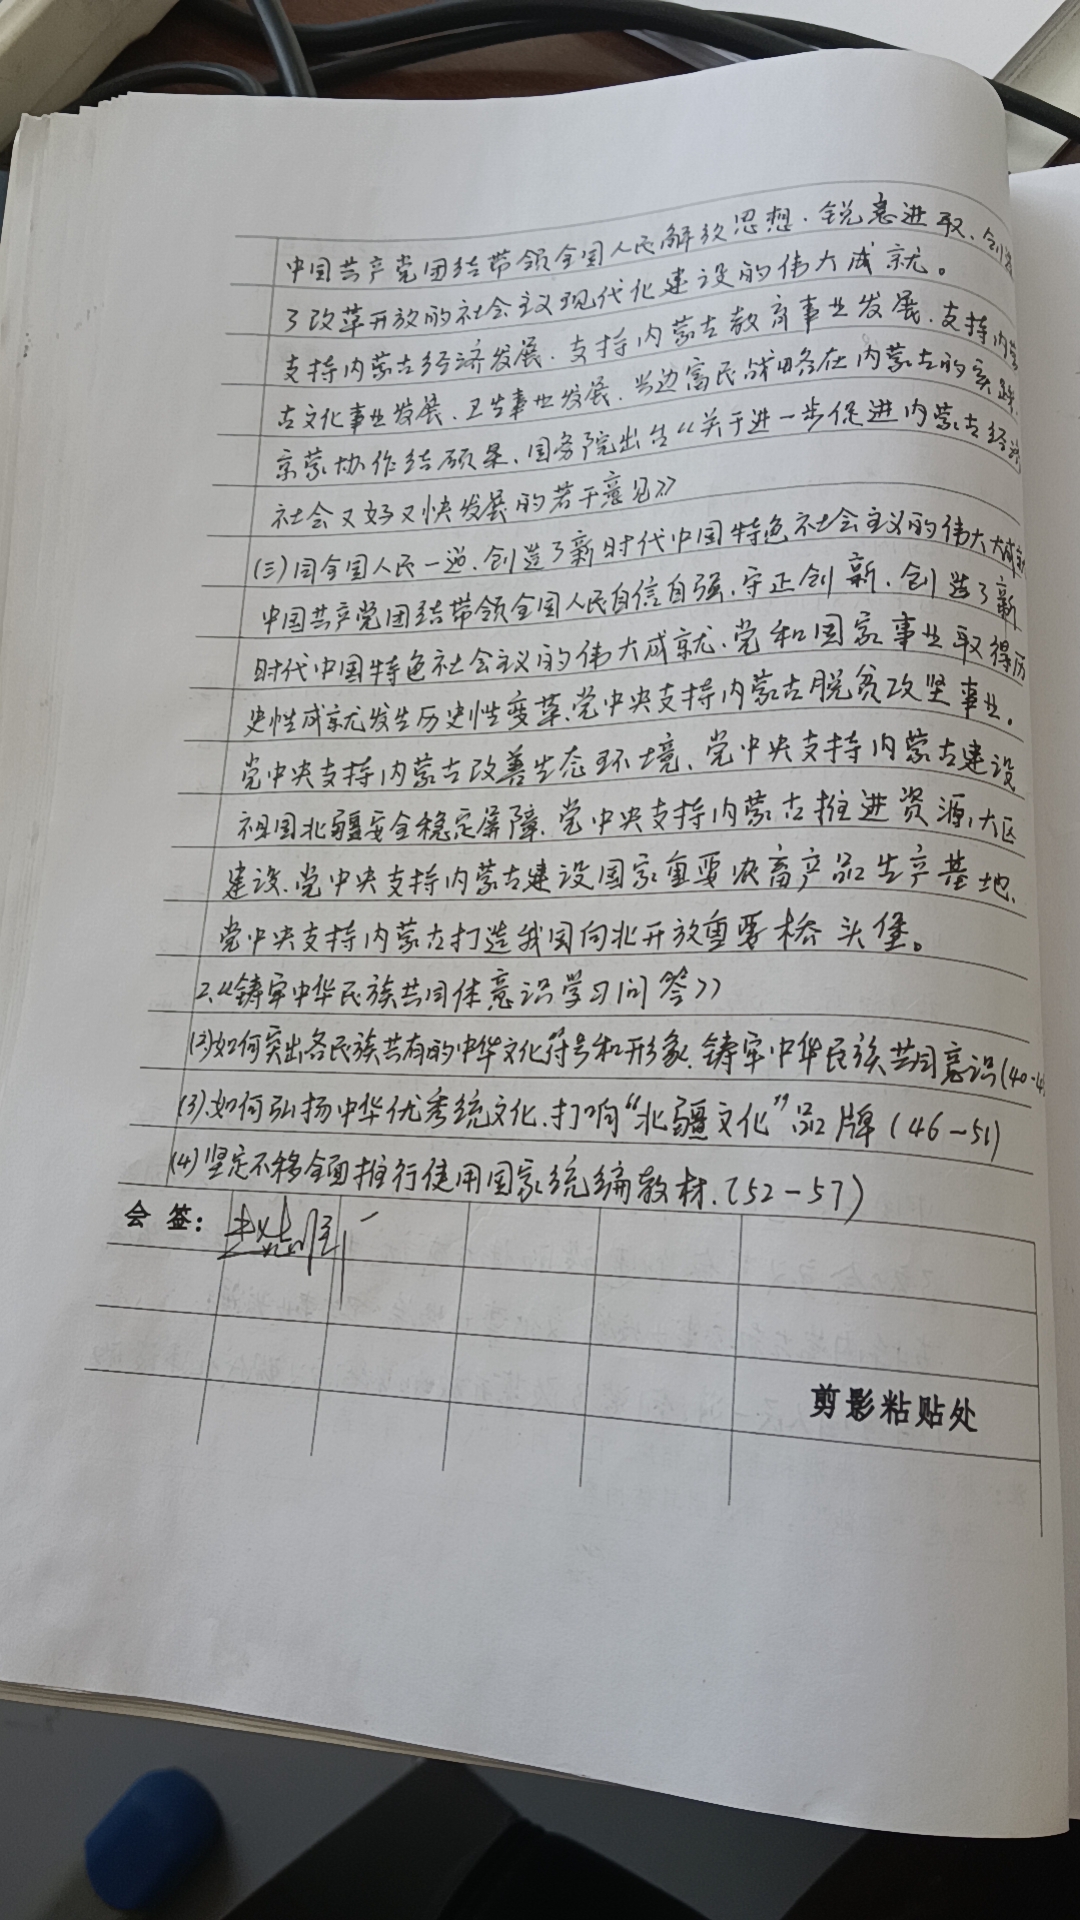 中国共产党团结带领全国人民解放思想.锐意进取.创造
了改革开放的社会主义现代化建设的伟大成就。
支持内蒙古经济发展.支持内蒙古教育事业发展.支持内蒙
古文化事业发展.卫生事业发展.兴边富民战略在内蒙古的实践.
京蒙协作结硕果、国务院出台《关于进一步促进内蒙古经济
社会又好又快发展的若干意见》
(三)同全国人民一道.创造了新时代中国特色社会主义的伟大大成就
中国共产党团结带领全国人民自信自强.守正创新.创造了新
时代中国特色社会主义的伟大成就.党和国家事业取得历
史性成就发生历史性变革.党中央支持内蒙古脱贫攻坚事业。
党中央支持内蒙古改善生态环境、党中央支持内蒙古建设
祖国北疆安全稳定屏障.党中央支持内蒙古推进资源大区
建设.党中央支持内蒙古建设国家重要农畜产品生产基地.
党中央支持内蒙古打造我国向北开放重要桥头堡。
2.《铸牢中华民族共同体意识学习问答》
(2)如何突出各民族共有的中华文化符号和形象.铸牢中华民族共同意识(40-4
(3).如何弘扬中华优秀统文化.打响“北疆文化”品牌(46-51)
(4)坚定不移全面推行使用国家统编教材.(52-57)
会签:
剪影粘贴处